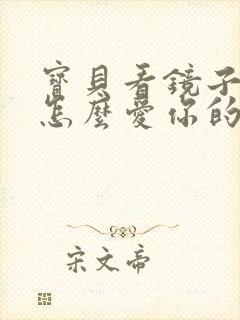 寶貝看鏡子
怎麼愛你的
宋文帝